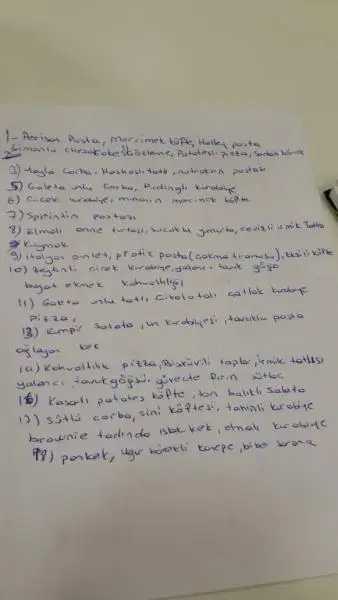 1- Perisan Pasta, marcimek köfte, Halley pasta
2 simanto cheesekake, gözleme, Patatesli pizza, Sodalı börek
3) Yayla Corba, Hashaslı tatlı, nutroken pastası
5) Galeta unlu Corba, Pudingli kurabiye
6) Cicek kurabiye, minanin marcimek köfte
7) Spisintin pastası
8) Elmalı anne turtası, sucuklu yumurta, cevizli irmik Tatlısı
Kuymak
9) italyan omlet, pratik pasta (cakma tiramusu), Ekşili köfte
10) Zeytinli cicek kurabiye, yalancı tavuk göğsü
bayat ekmek kahvaltılığı
11) Galeta unlu tatlı, Cikolatalı catlak kurabiye
Pizza,
13) Kumpir Salata, un kurabiyesi, tavuklu pasta
ağlayan kek
14) Kahvaltılık pizza, Bisküvili toplar, irmik tatlısı
yalancı tavuk göğsü, güvecte fırın sütlac
16) Kasarlı patates köfte, ton balıklı Salata
17) Sütlü corba, sini köftesi, tahinli kurabiye
brownie tadında ıslak kek, elmalı kurabiye
18) pankek, Uğur börekli kanepe, biber sarma